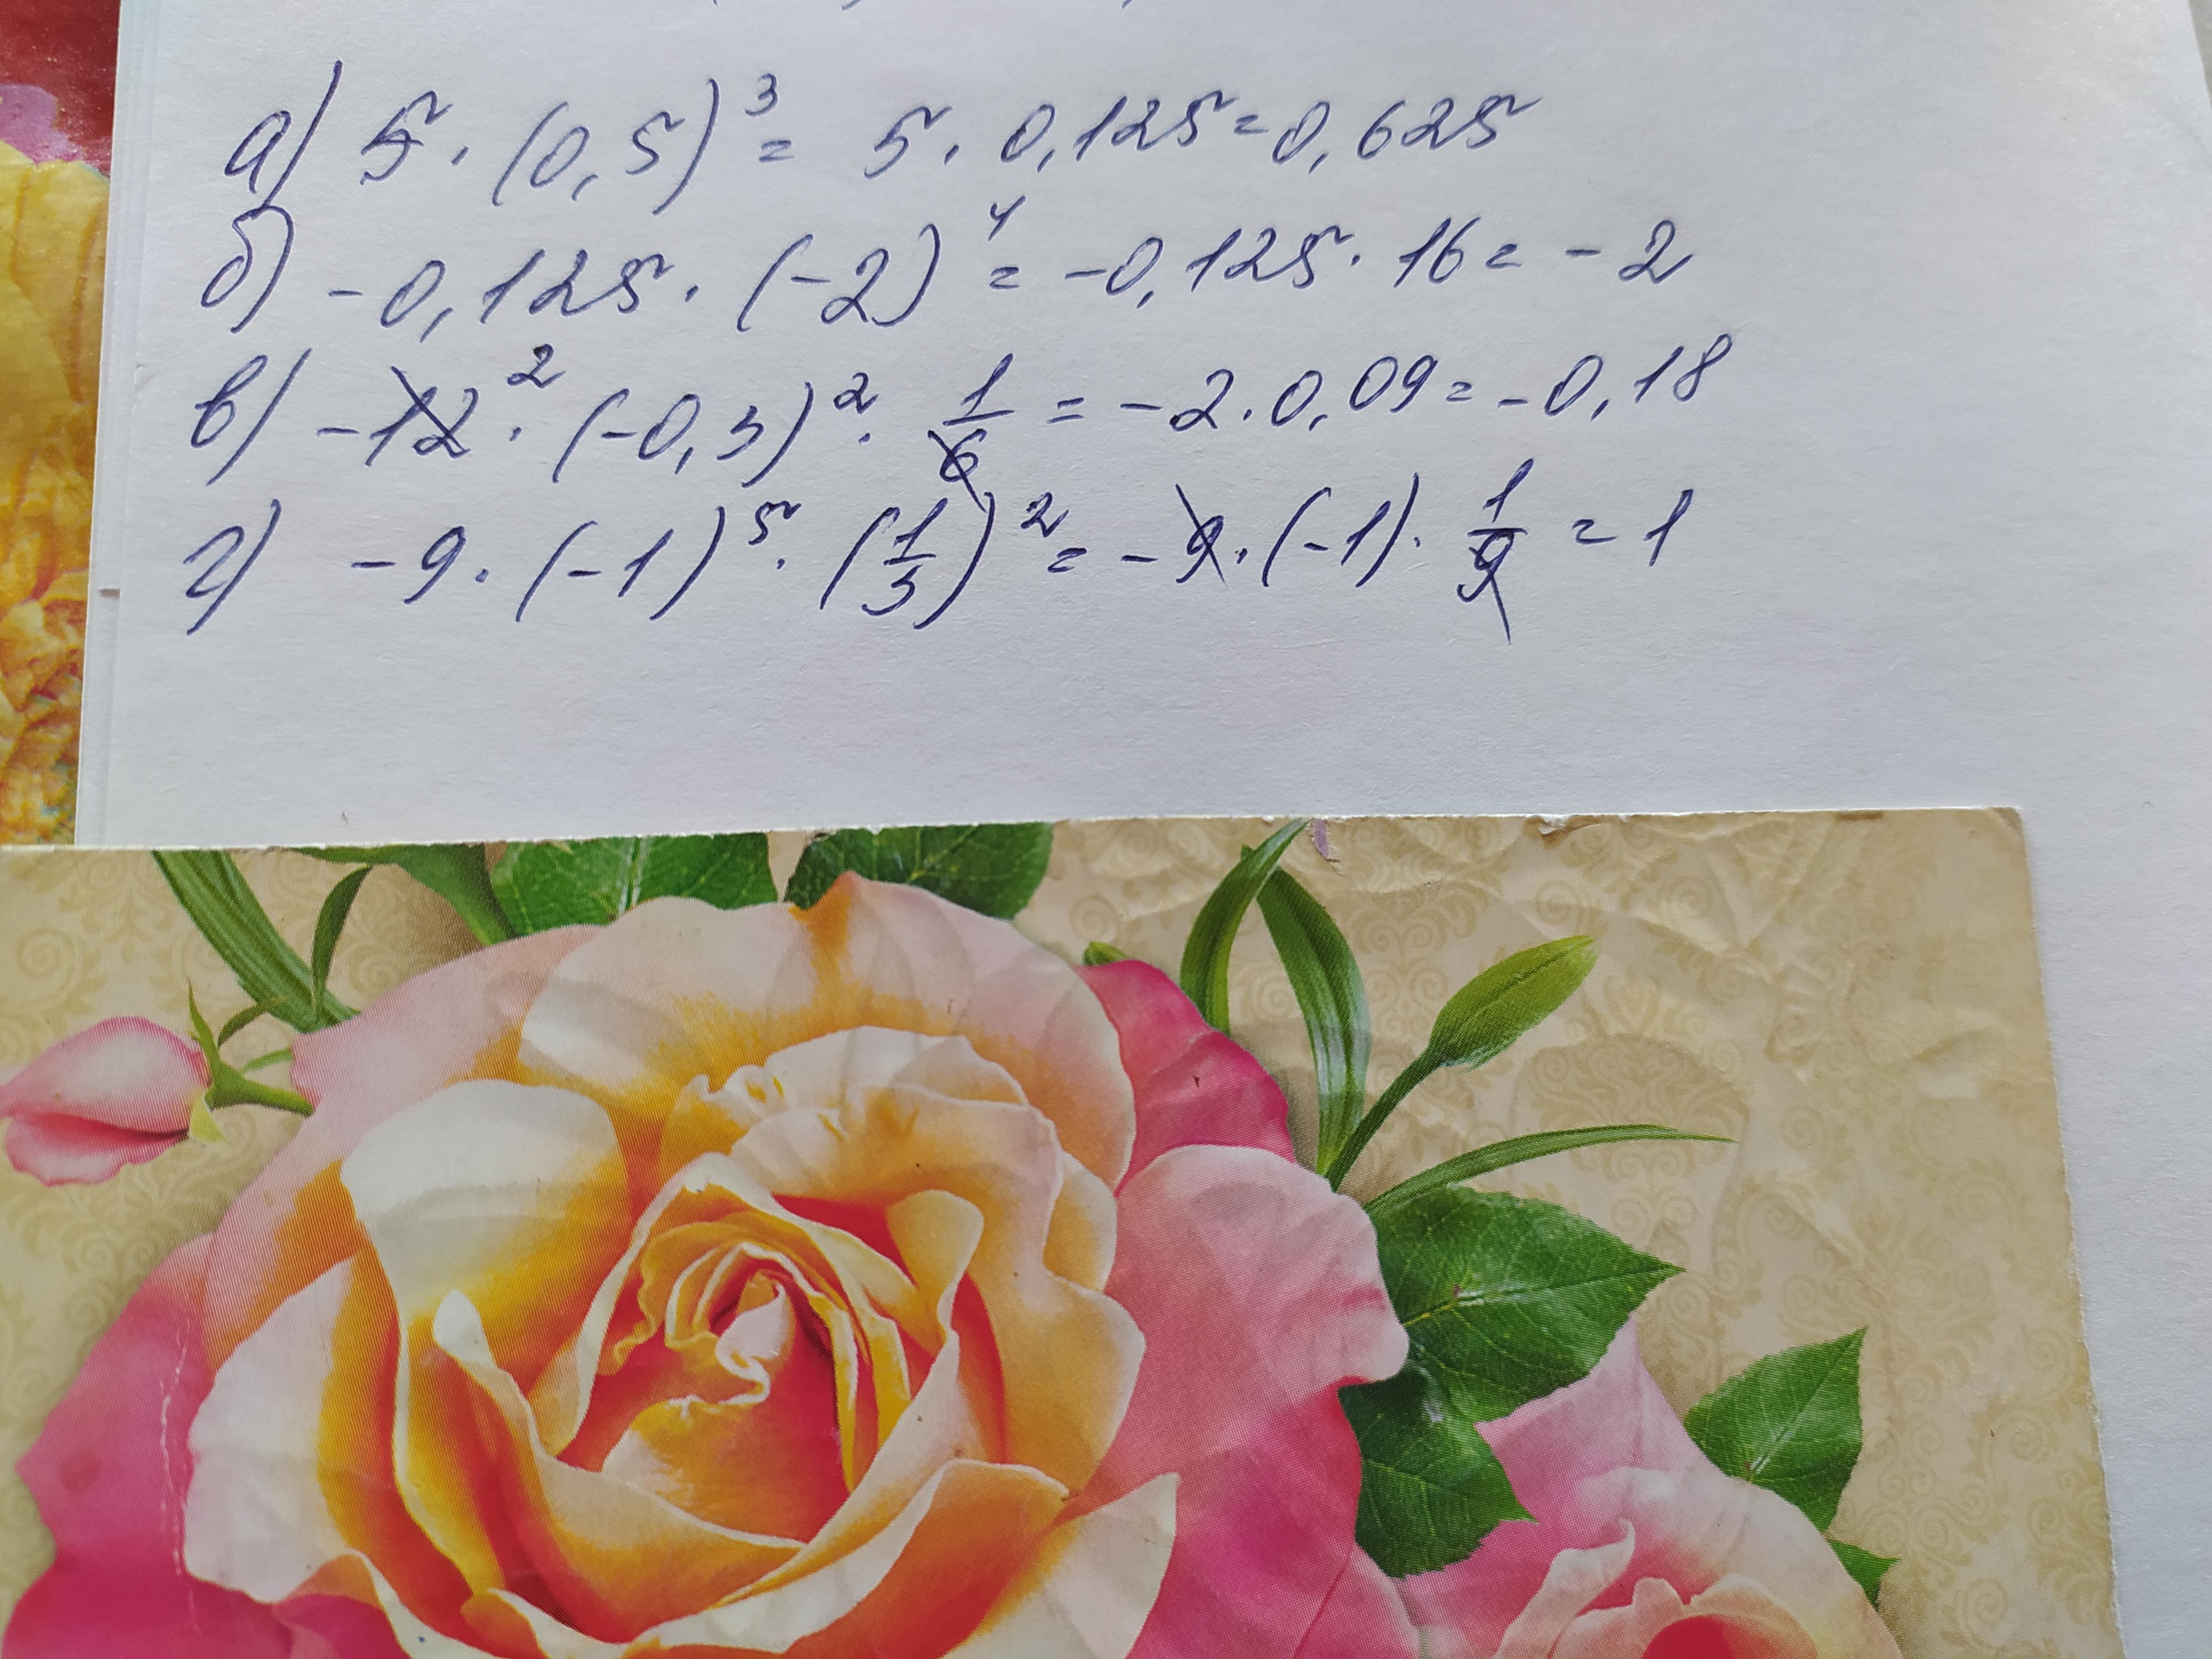 а) 5 · (0,5)³ = 5 · 0,125 = 0,625
б) -0,125 · (-2)⁴ = -0,125 · 16 = -2
в) -12² · (-0,3)² · 1/6 = -2 · 0,09 = -0,18
г) -9 · (-1)⁵ · (1/3)² = -9 · (-1) · 1/9 = 1